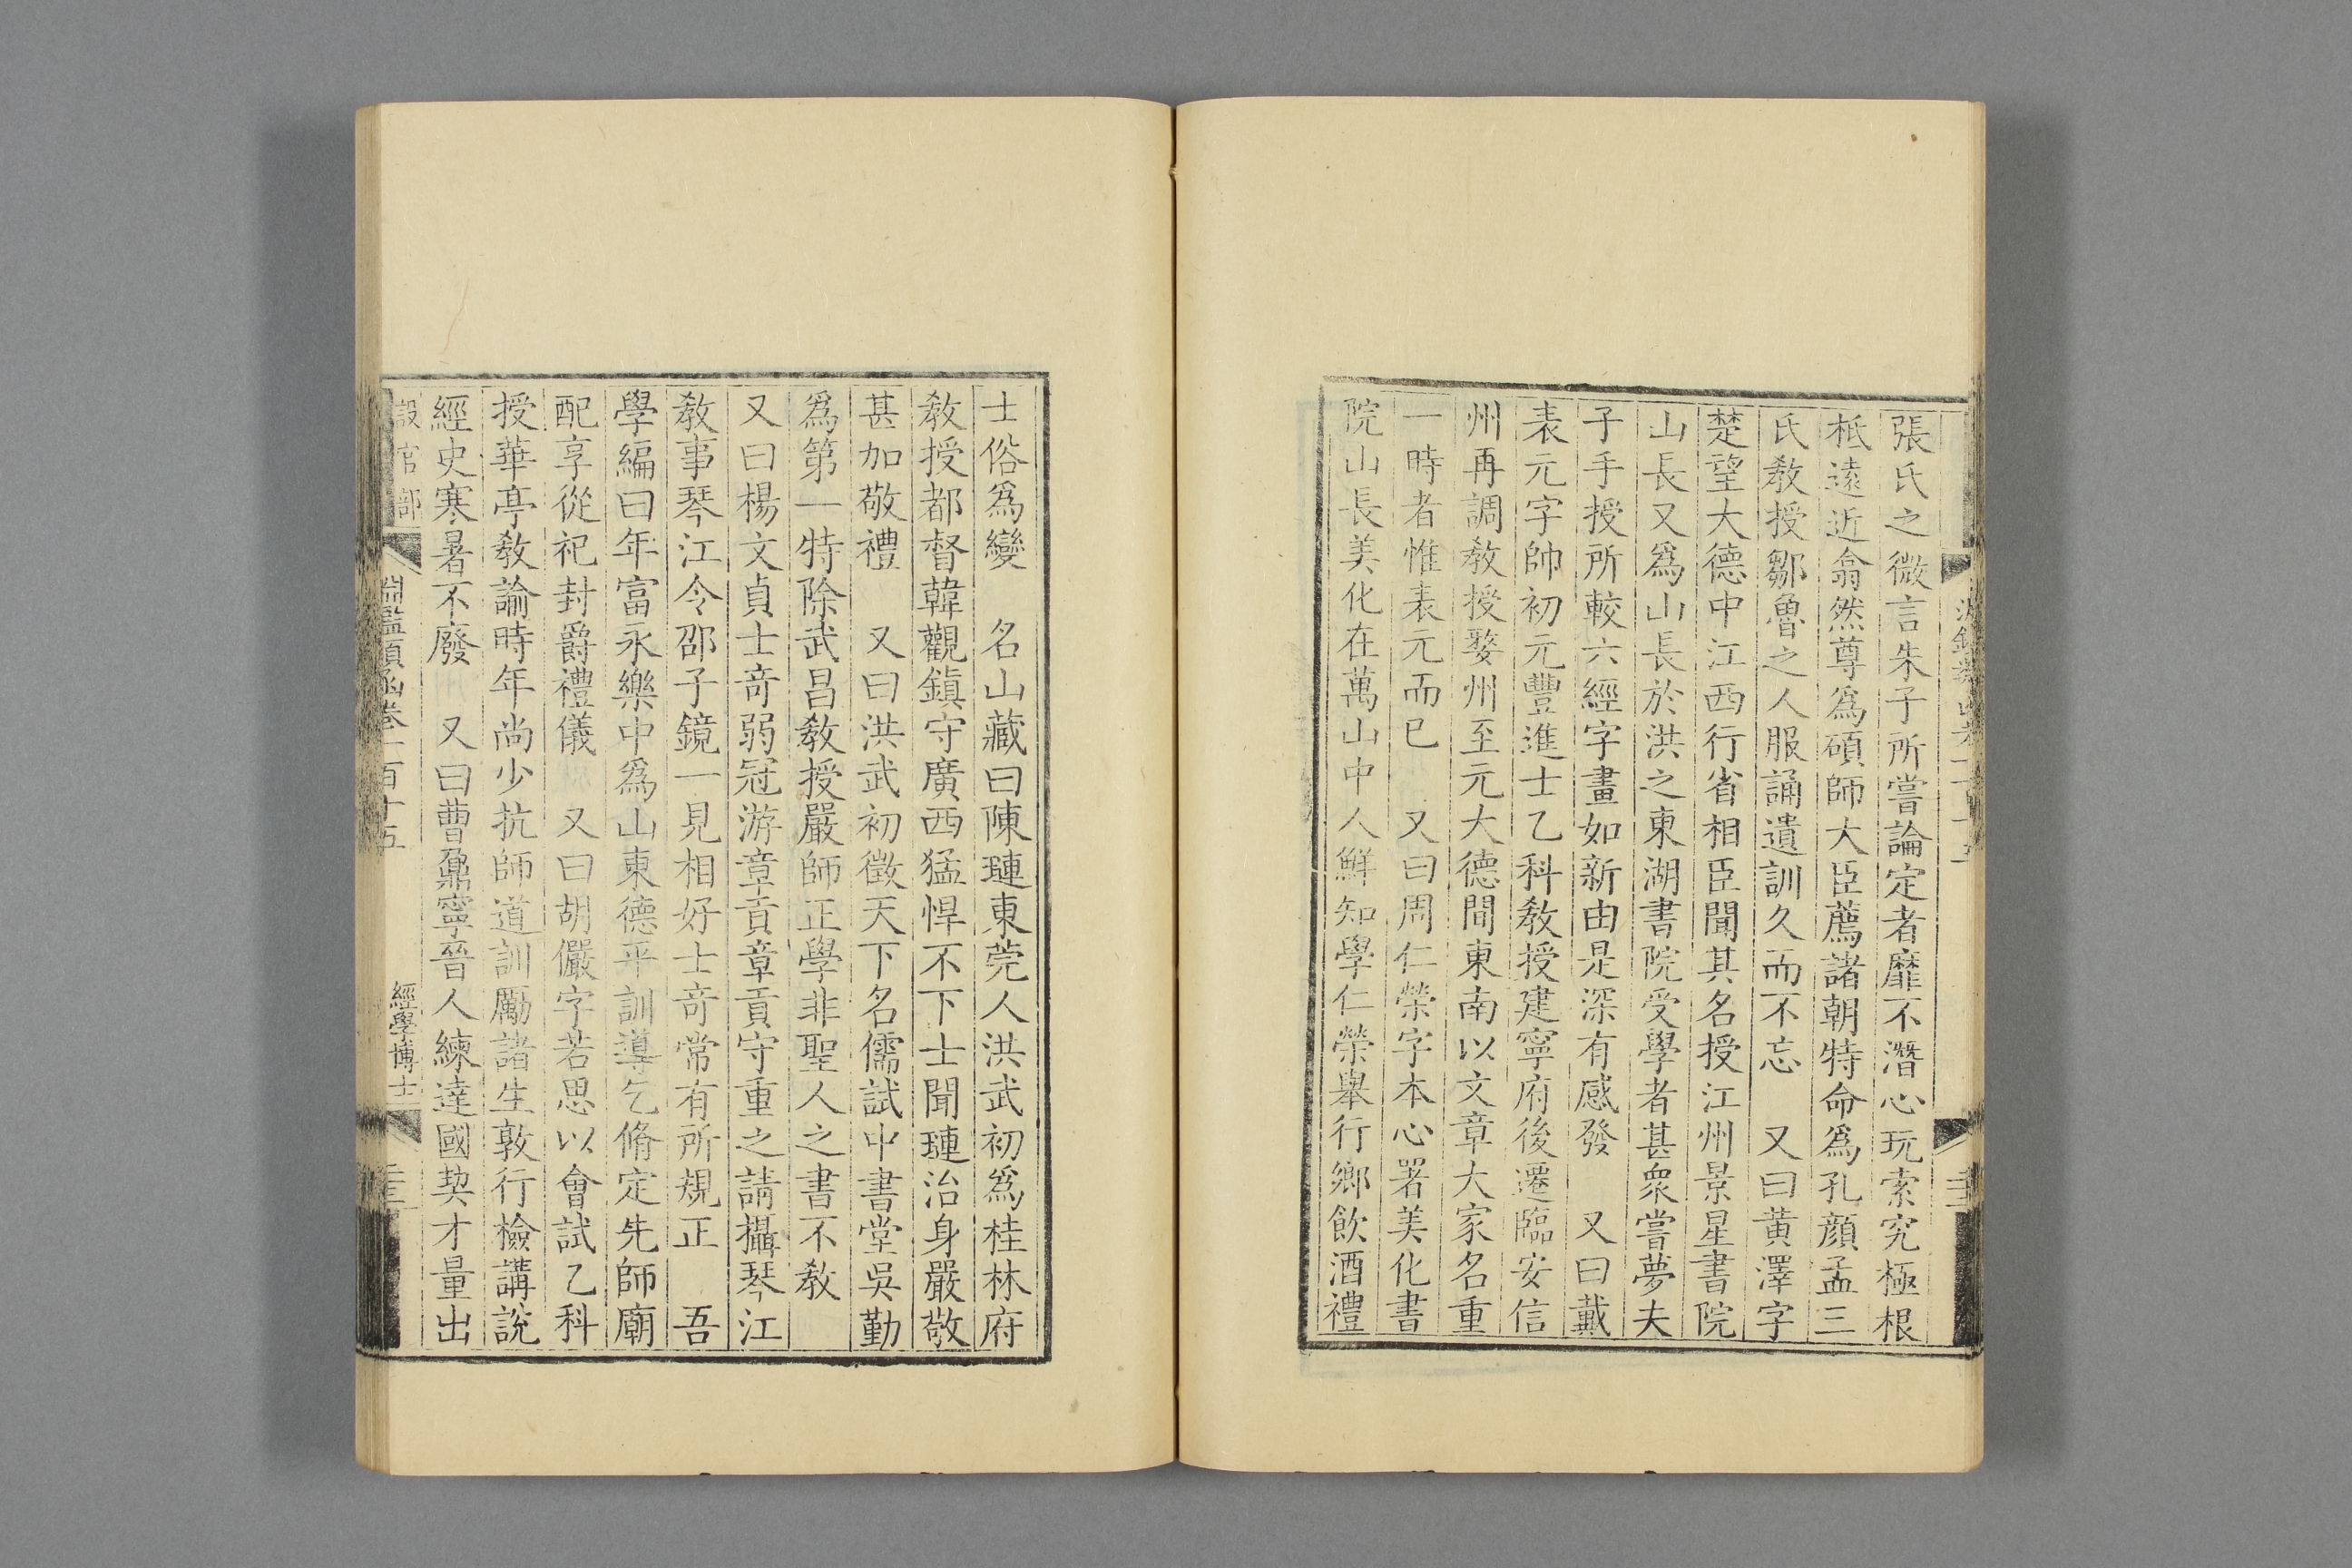 張氏之微言朱子所嘗論定者靡不潛心玩索究極根
柢遠近翕然尊爲碩師大臣薦諸朝特命爲孔顔孟三
氏教授鄒魯之人服誦遺訓久而不忘　又曰黄澤字
楚望大德中江西行省相臣聞其名授江州景星書院
山長又爲山長於洪之東湖書院受學者甚衆嘗夢夫
子手授所較六經字畫如新由是深有感發　又曰戴
表元字帥初元豐進士乙科教授建寧府後遷臨安信
州再調教授婺州至元大德間東南以文章大家名重
一時者惟表元而已　又曰周仁榮字本心署美化書
院山長美化在萬山中人鮮知學仁榮舉行鄉飲酒禮
士俗爲變　名山藏曰陳璉東莞人洪武初爲桂林府
教授都督韓觀鎮守廣西猛悍不下士聞璉治身嚴敬
甚加敬禮　又曰洪武初徵天下名儒試中書堂吳勤
爲第一特除武昌教授嚴師正學非聖人之書不教
又曰楊文貞士竒弱冠游章貢章貢守重之請攝琴江
教事琴江令邵子鏡一見相好士竒常有所規正　吾
學編曰年富永樂中爲山東德平訓導乞脩定先師廟
配享從祀封爵禮儀　又曰胡儼字若思以會試乙科
授華亭教諭時年尚少抗師道訓厲諸生敦行檢講說
經史寒暑不廢　又曰曹鼐寧晉人練達國契才量出
設官部　淵鑑類函卷一百十五　經學博士